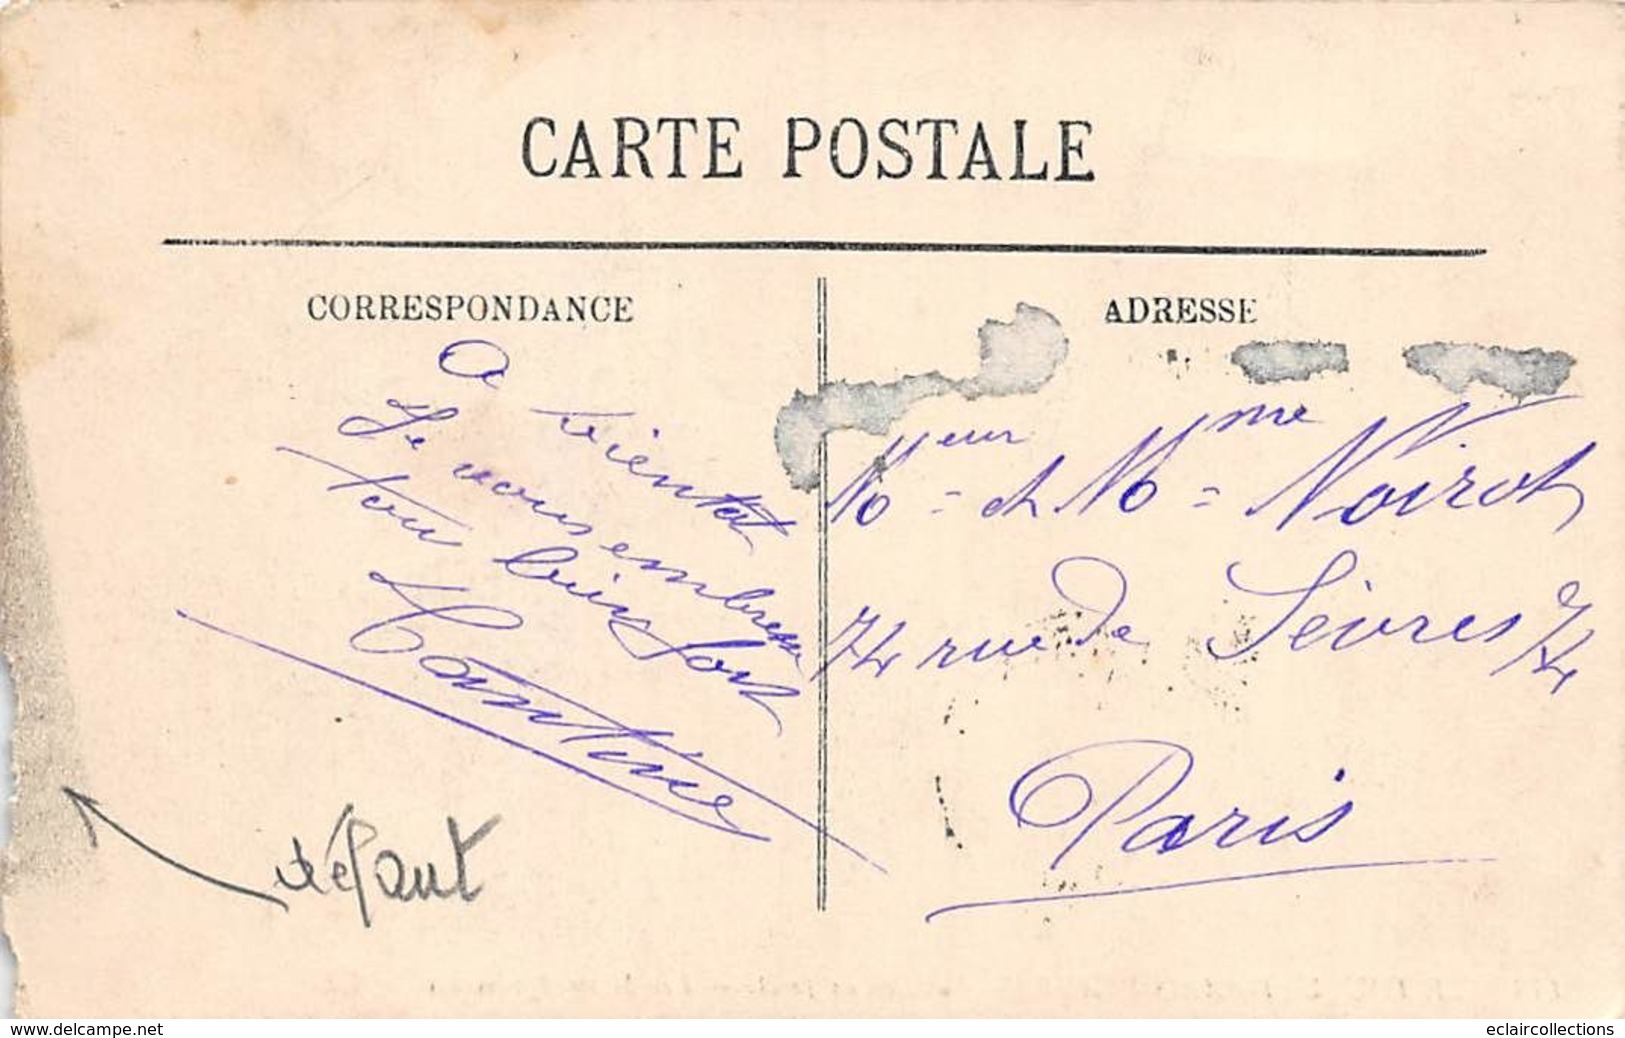 CARTE POSTALE
CORRESPONDANCE
A bientot
Je vous embrasse
tou bien fort
ADRESSE
Meur = et Mme = Noirot
74 rue de Sèvres 74
Paris
défaut
www.delcampe.net
eclaircollections